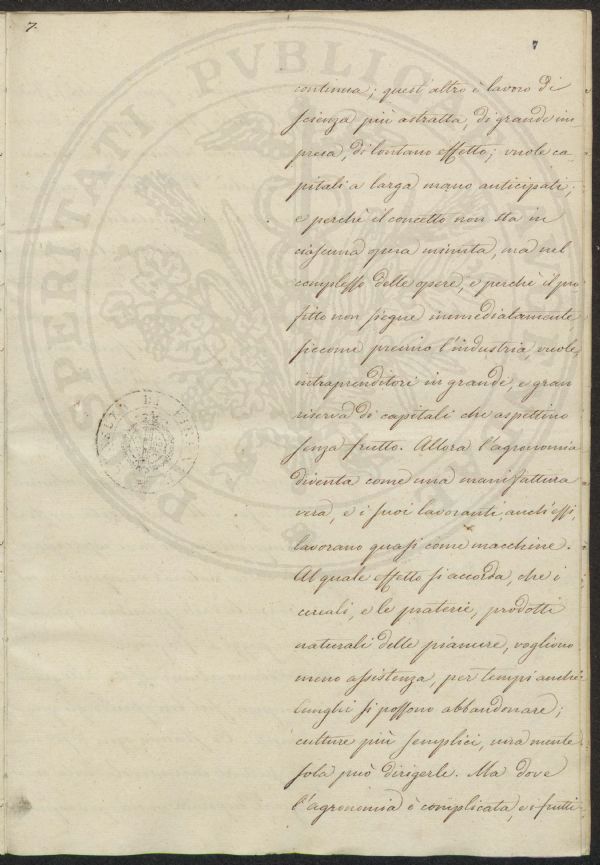 7.
7
continua; quest'altro è lavoro di
scienza più astratta, di grande im¬
presa, di lontano effetto; vuole ca¬
pitali a larga mano anticipati;
e perchè il concetto non sta in
ciascuna opera minuta, ma nel
complesso delle opere, e perchè il pro¬
fitto non siegue immediatamente
siccome premio l'industria, vuole
intraprenditori in grande, e gran
riserva di capitali che aspettino
senza frutto. Allora l'agronomia
diventa come una manifattura
vera, e i suoi lavoranti, anch'essi,
lavorano quasi come macchine.
Al quale effetto si accorda, che i
cereali, e le praterie, prodotti
naturali delle pianure, vogliono
meno assistenza, per tempi anche
lunghi si possono abbandonare;
culture più semplici, una mente
sola può dirigerle. Ma dove
l'agronomia è complicata, e i frutti
PERITATI PVBLICA